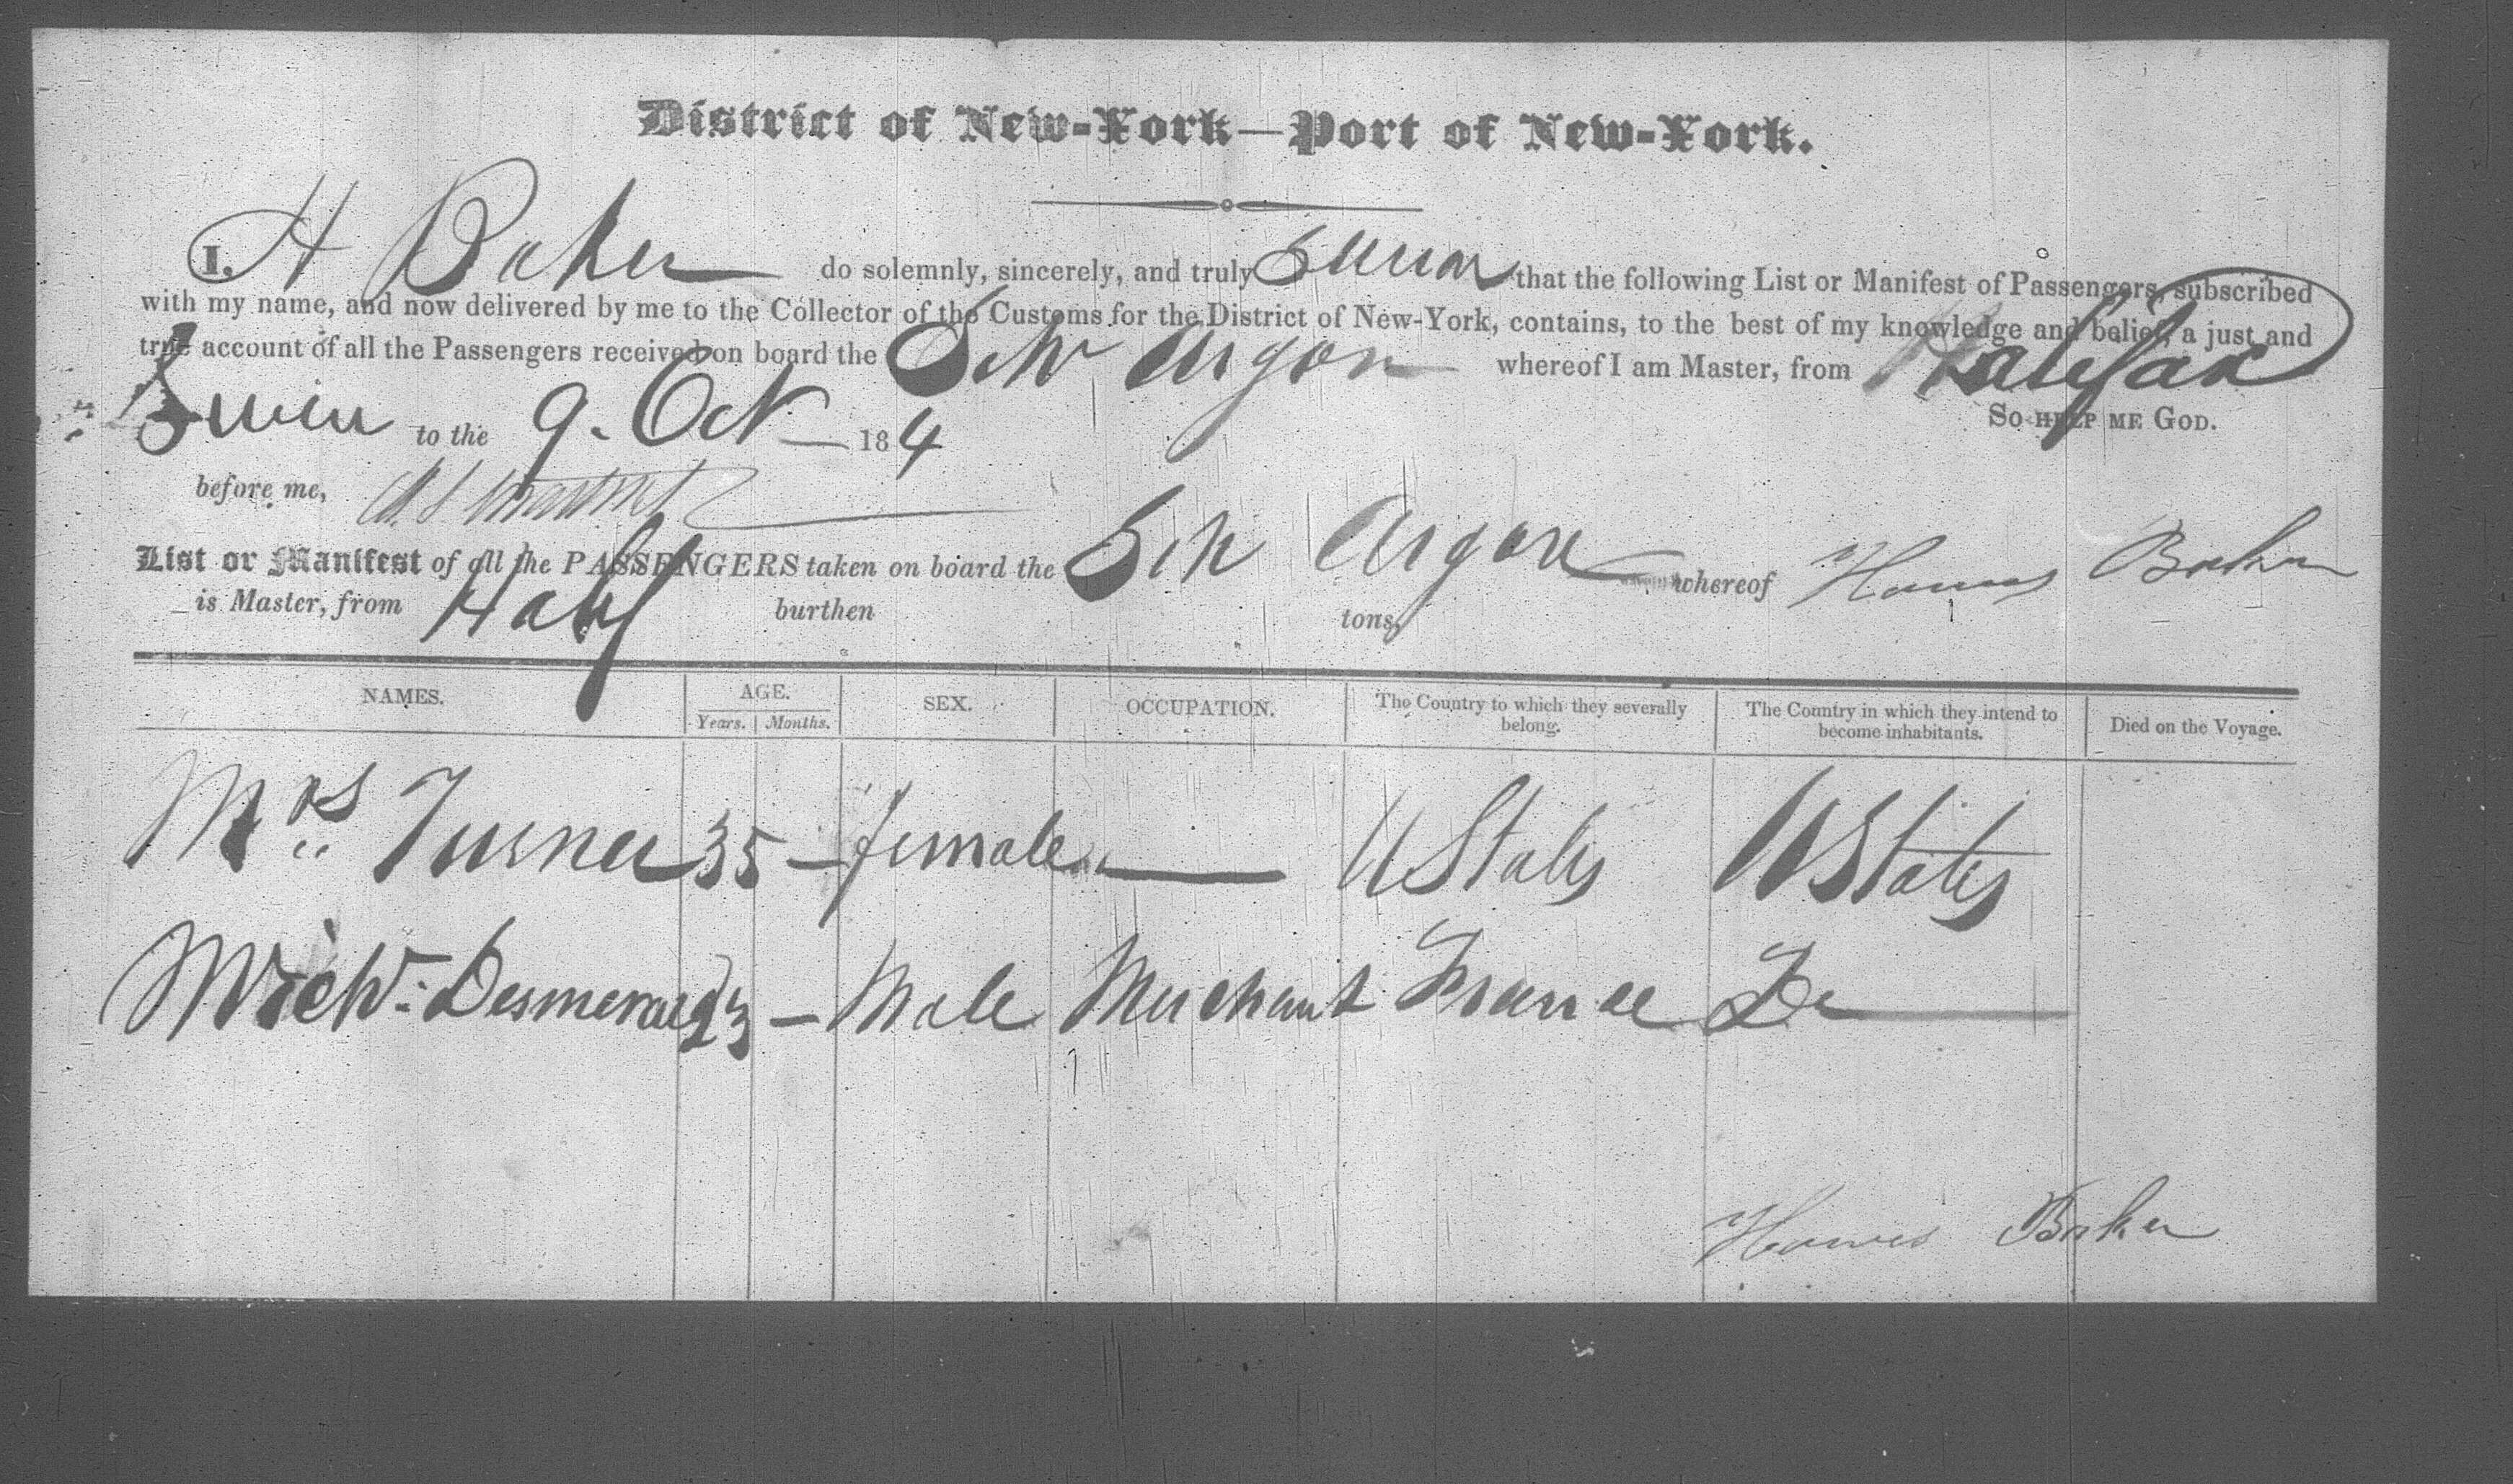 District of New-York—Port of New-York.
I, H Baker do solemnly, sincerely, and truly Swear that the following List or Manifest of Passengers, subscribed
with my name, and now delivered by me to the Collector of the Customs for the District of New-York, contains, to the best of my knowledge and belief, a just and
true account of all the Passengers received on board the Schr Argon whereof I am Master, from Halifax
Sworn to the 9. Oct 184 So help me God.
before me,
List or Manifest of all the PASSENGERS taken on board the Sch Argon whereof Howes Baker
is Master, from Half burthen tons,
NAMES. AGE. SEX. OCCUPATION. The Country to which they severally belong. The Country in which they intend to become inhabitants. Died on the Voyage.
Years. Months.
Mrs Turner 35 — female — U States U States
Male Merchant France Do
Howes Baker